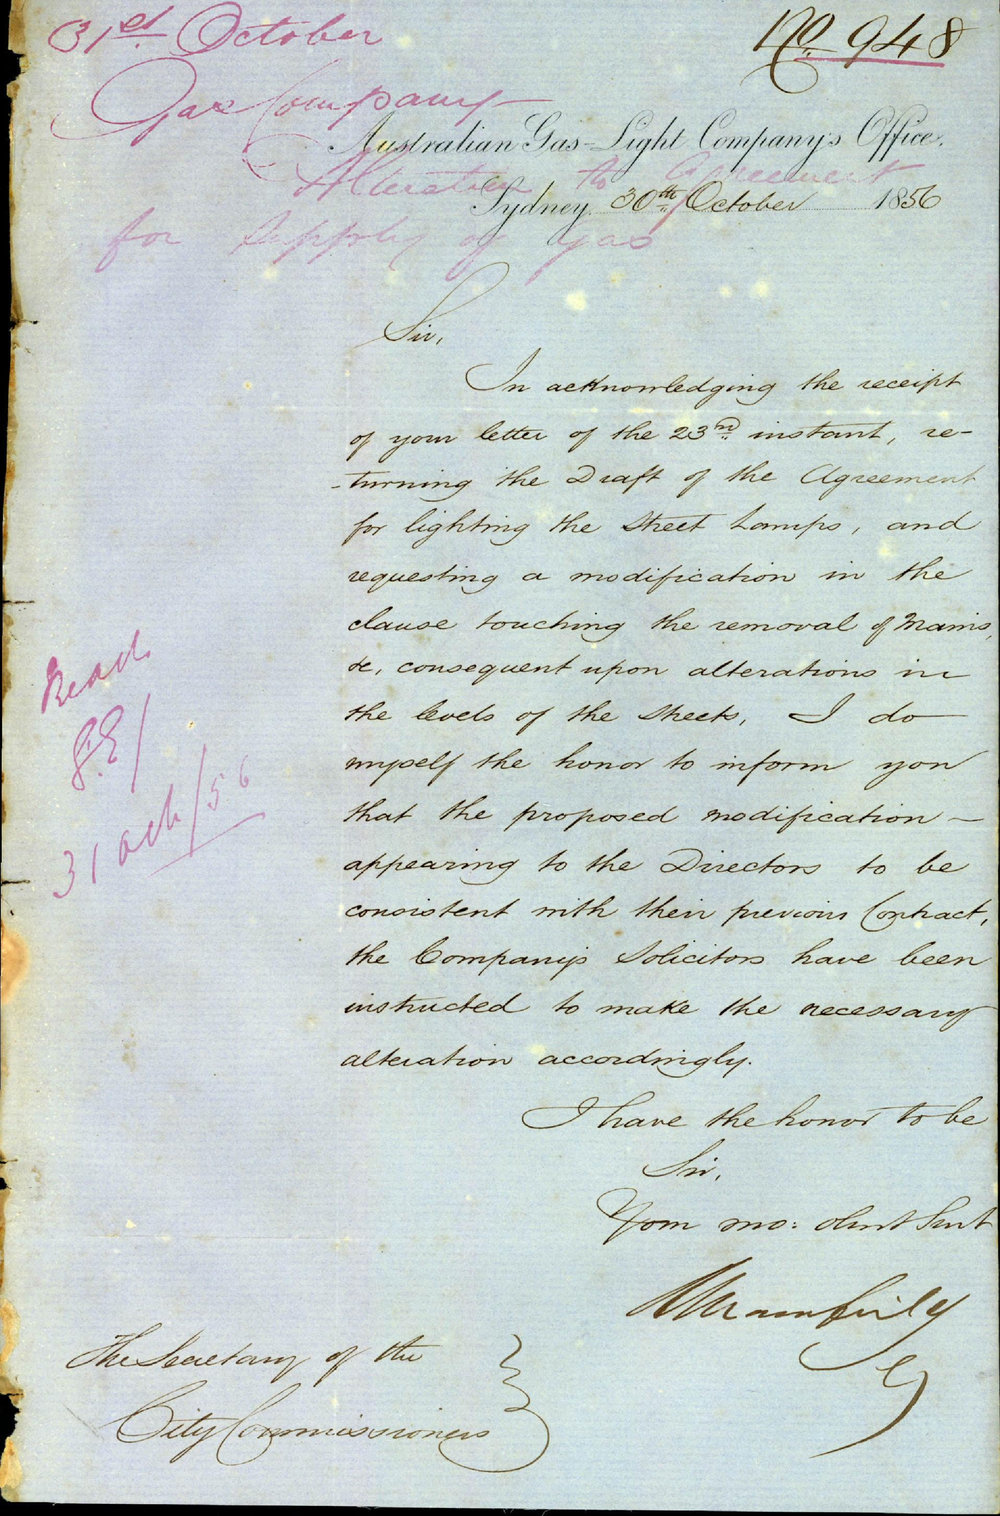 31st. October
No. 948
Gas Company
Australian Gas-Light Company's Office.
Alteration to Agreement
Sydney. 30th. October 1856
for supply of gas
Sir,
In acknowledging the receipt
of your letter of the 23rd. instant, re-
-turning the Draft of the Agreement
for lighting the Street Lamps, and
requesting a modification in the
clause touching the removal of Mains,
&c, consequent upon alterations in
the levels of the Streets, I do
myself the honor to inform you
that the proposed modification
appearing to the Directors to be
consistent with their previous Contract,
the Company's Solicitors have been
instructed to make the necessary
alteration accordingly.
I have the honor to be
Sir,
Your mo: obnt Servt
The Secretary of the
City Commissioners
Read
31 Oct/56